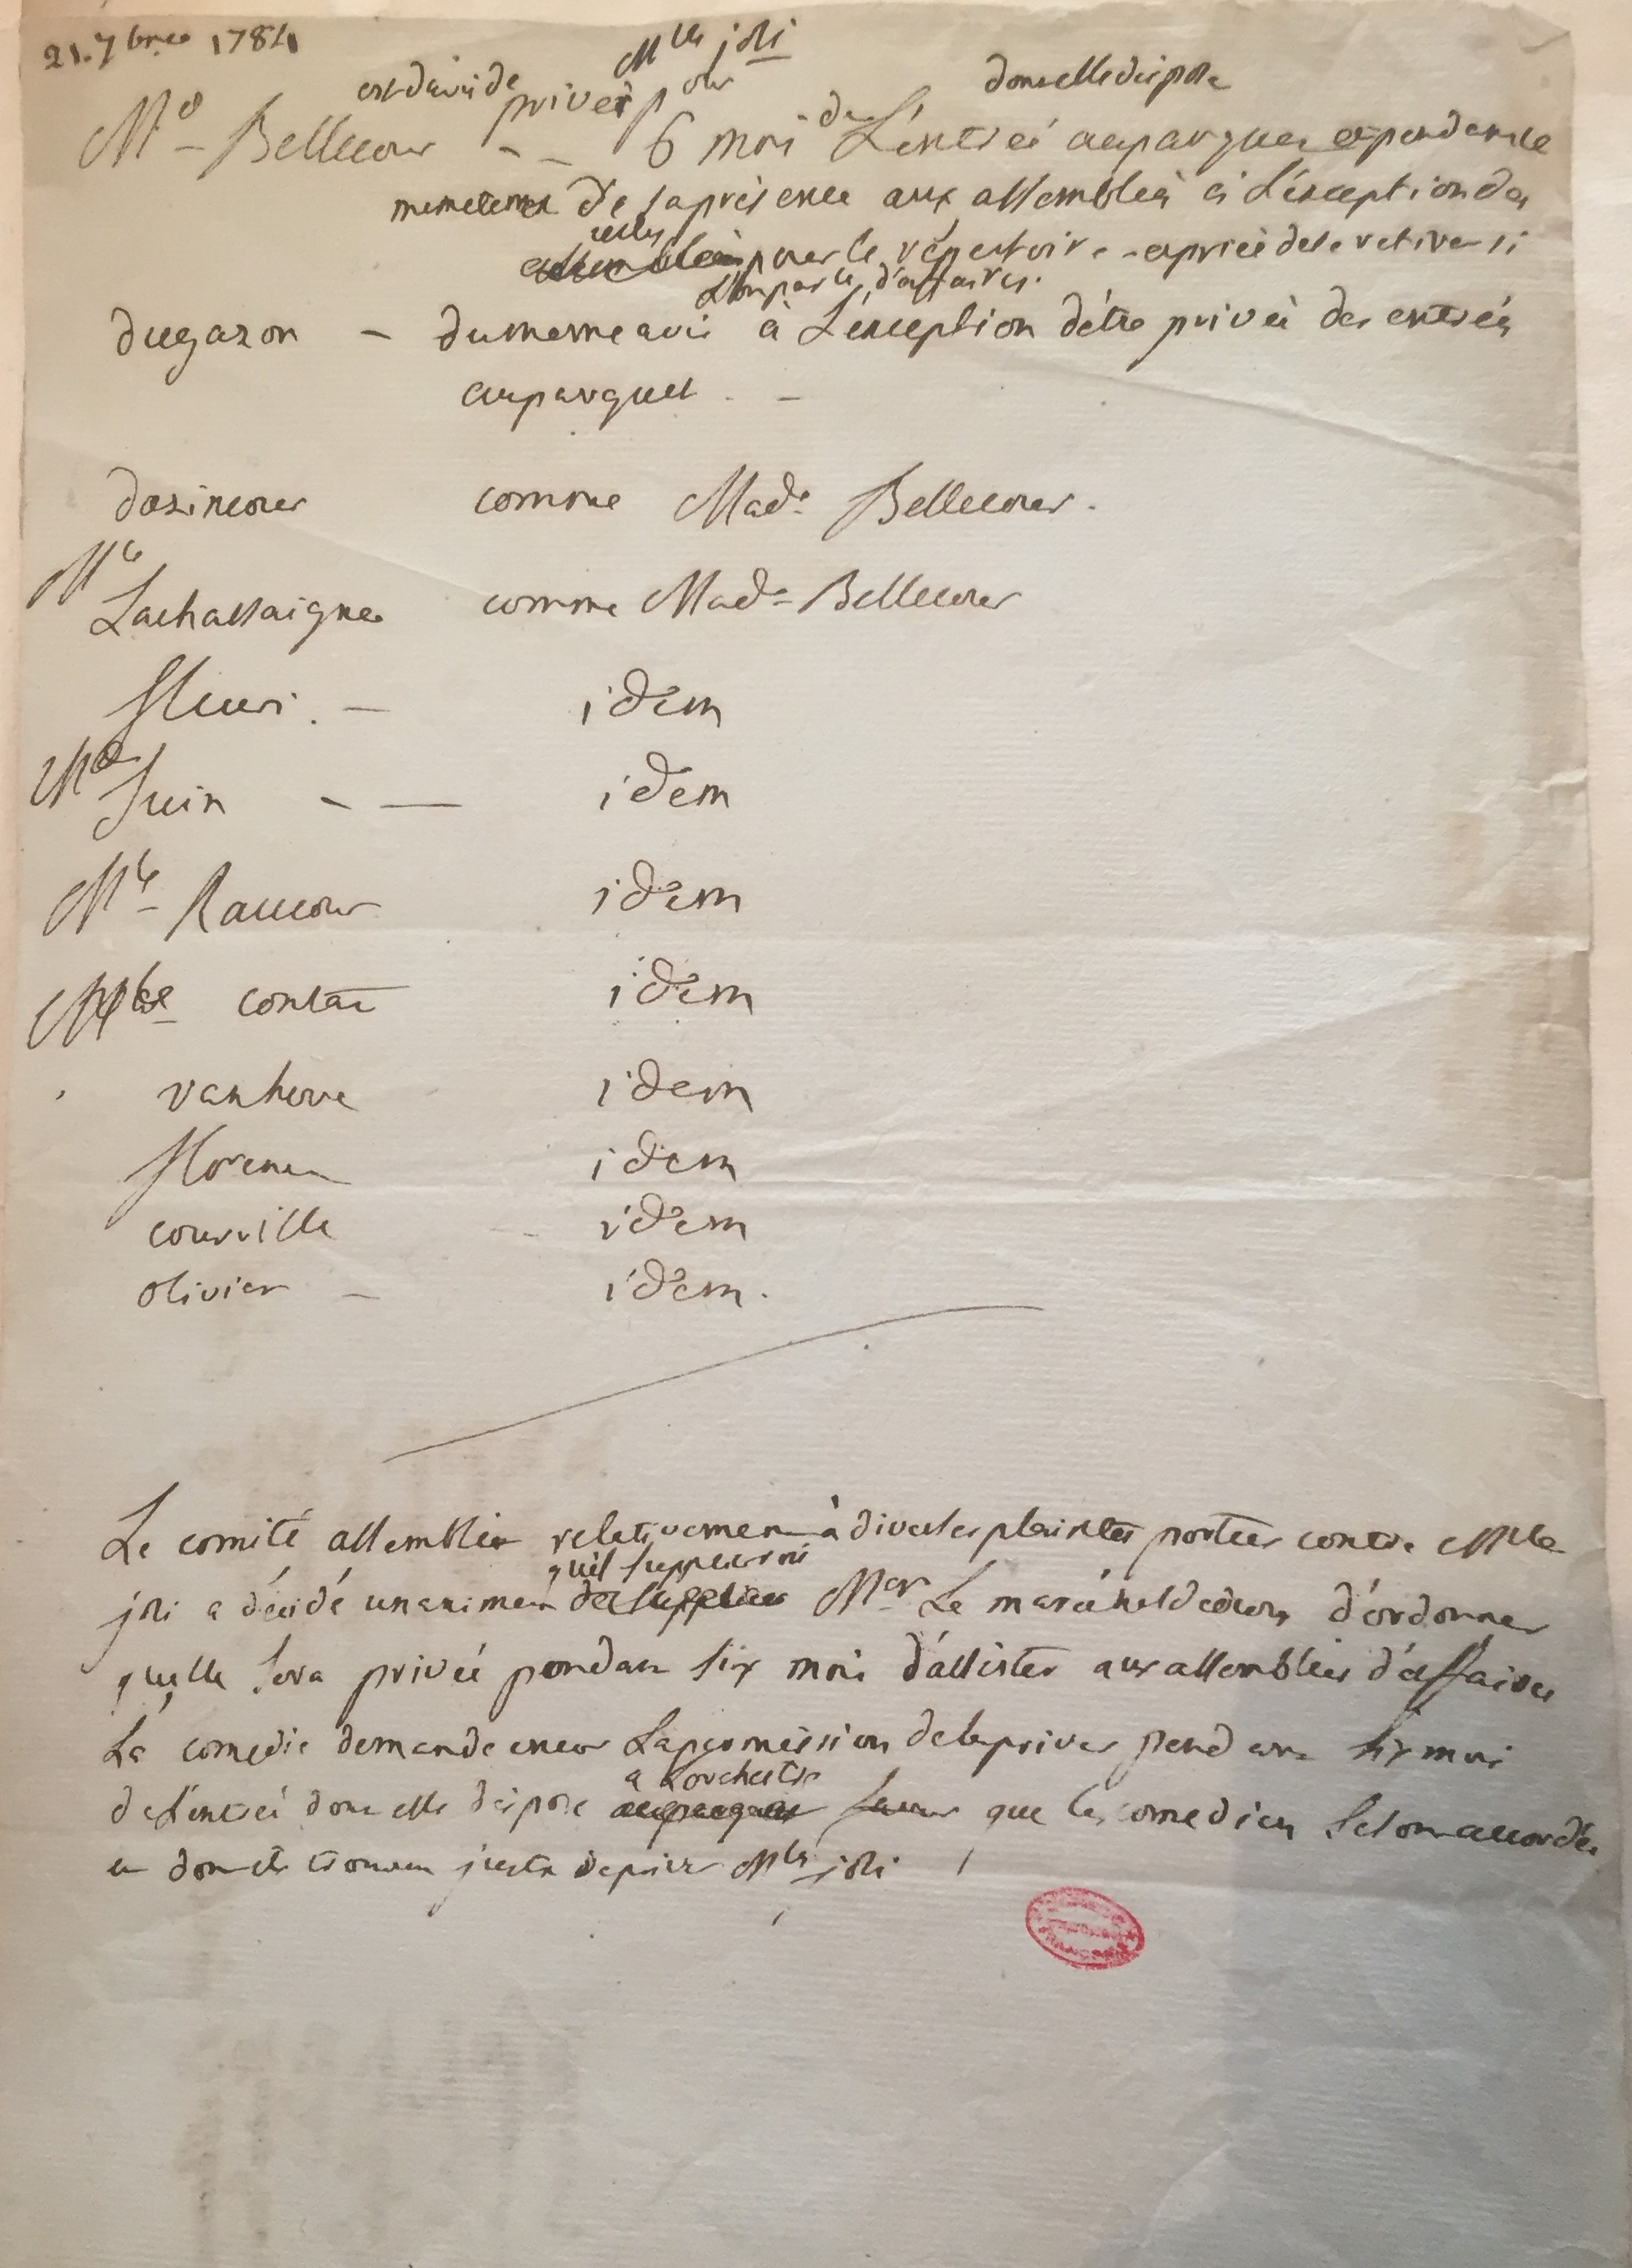 21. 7bre 1784
Mlle joli
est davis de priver pour dont elle dispose
Me Bellecour - - 6 moi de L'entrée au parquet et pendant le
meme tems de sa présence aux assemblées à L'exception des
celles
assemblées pour le répertoire et priée de se retirer si
L'on parle d'affaires.
dugazon - du meme avis à L'exception d'être privée des entrées
au parquet. -
dazincour comme Made Bellecour.
Mle
Lachassaigne comme Made Bellecour
fleuri. - idem
Md
Suin - - idem
Mle Raucour idem
Mlle contat idem
vanhove idem
florence idem
courville - idem
olivier - idem.
Le comité assemblée relativement à diverses plaintes portées contre Mlle
qu'il supplieroit
joli a décidé unanimement de supplier Mgr Le maréchal de duras d'ordonner
quelle sera privée pendant six moi d'assister aux assemblées d'affaires
La comedie demande encor La permission de la priver pendant six moi
a Lorchestre
de L'entrée dont elle dispose au parquet faveur que les comediens se sont accordée
et dont ils trouvent juste de priver Mlle joli